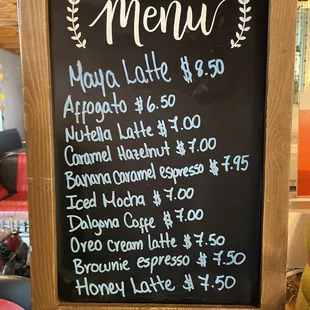 Menu
Maya Latte $8.50
Affogato $6.50
Nutella Latte $7.00
Caramel Hazelnut $7.00
Banana caramel espresso $7.95
Iced Mocha $7.00
Dalgona Coffe $7.00
Oreo cream latte $7.50
Brownie espresso $7.50
Honey Latte $7.50